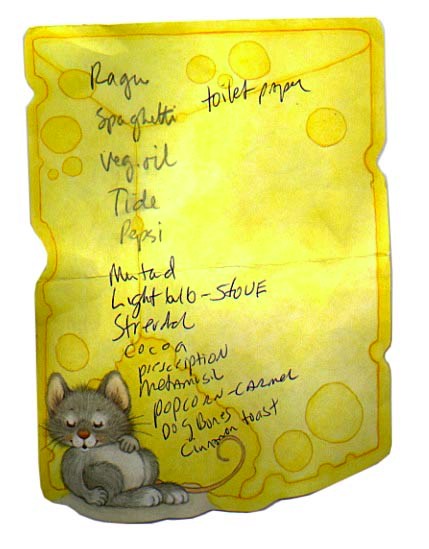 Ragu
toilet paper
Spaghetti
Veg. oil
Tide
Pepsi
Mustad
Light bulb - STOVE
cocoa
prescription
metamusil
POPCORN - CARMEL
DOG Bones
Cinnamon toast